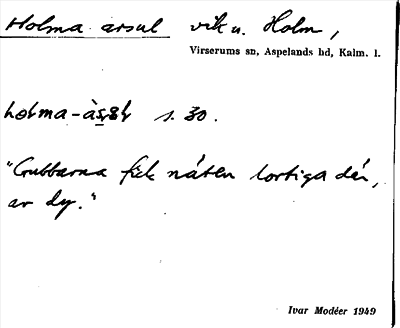 Holma arsul vik u. Holm,
Virserums sn, Aspelands hd, Kalm. l.
s. 30.
"Gubbarna fick näten lortiga där,
av dy."
Ivar Modéer 1949